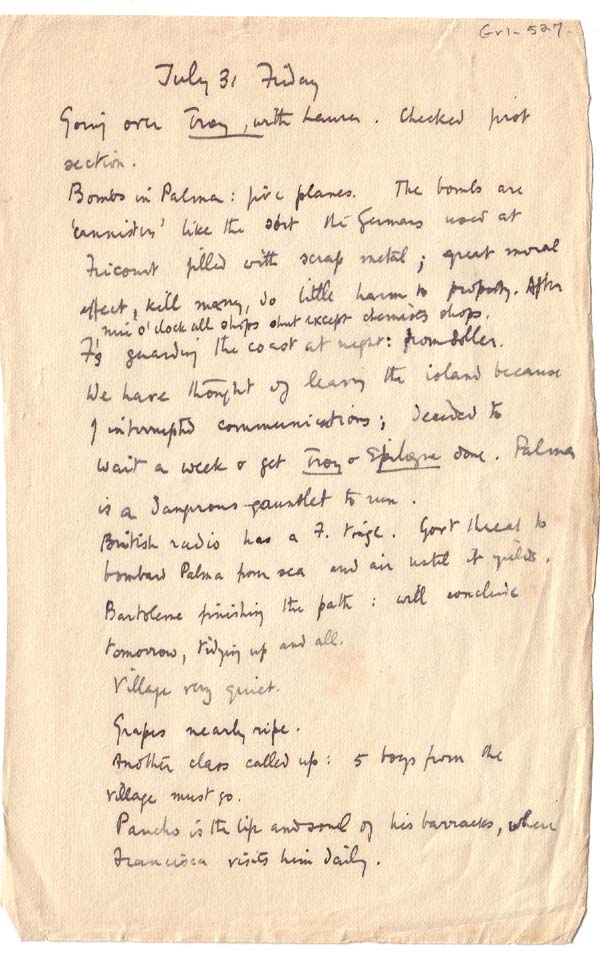 Gr1-527.
July 31 Friday
Going over Troy, with Laura. Checked first
section.
Bombs in Palma: five planes. The bombs are
'cannisters' like the sort the Germans used at
Fricourt filled with scrap metal; great moral
effect, kill many, do little harm to property. After
nine o'clock all shops shut except chemists shops.
F's guarding the coast at night: from Soller.
We have thought of leaving the island because
of interrupted communications; decided to
wait a week & get Troy & Epilogue done. Palma
is a dangerous gauntlet to run.
British radio has a F. tinge. Govt threat to
bombard Palma from sea and air until it yields.
Bartolome finishing the path: will conclude
tomorrow, tidying up and all.
Village very quiet.
Grapes nearly ripe.
Another class called up: 5 boys from the
village must go.
Pancho is the life and soul of his barracks, where
Francisca visits him daily.